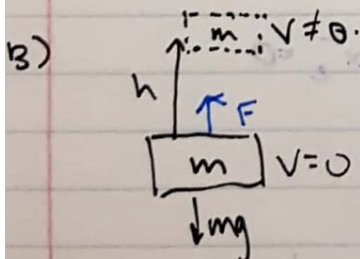 m V ≠ 0.
B)
h
F
m V=0
mg